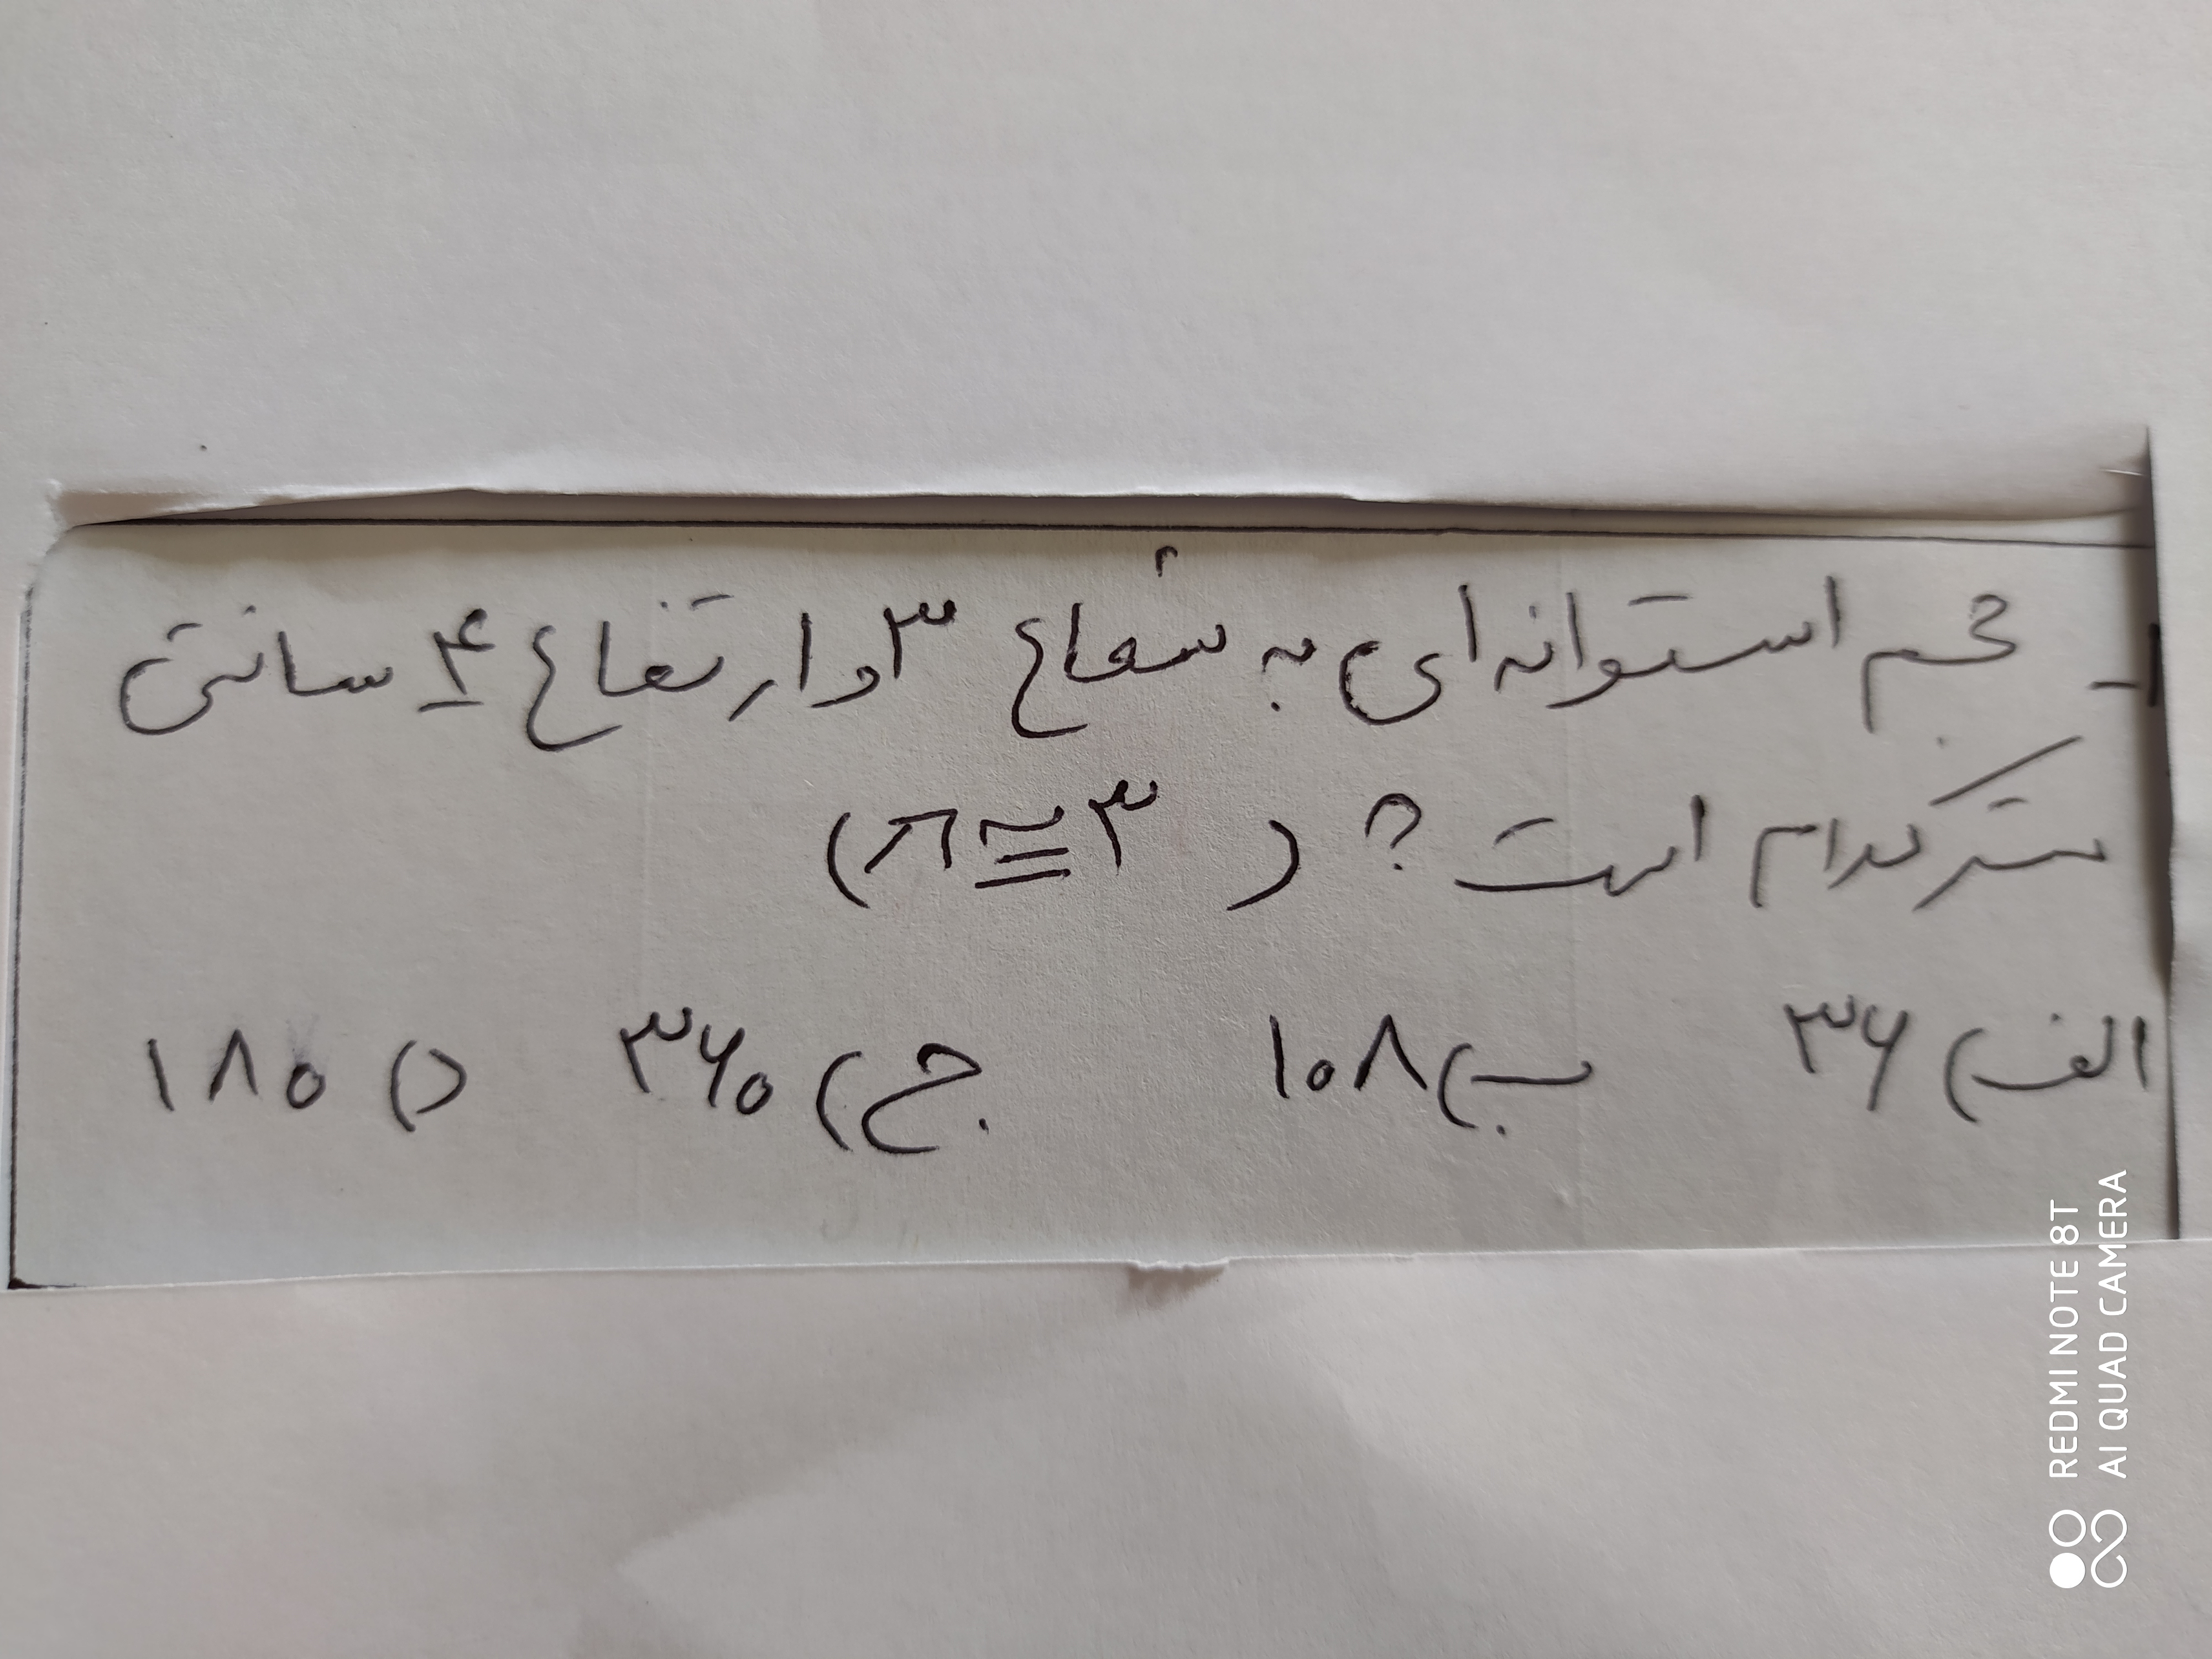 ۱- حجم استوانه‌ای به شعاع ۳ و ارتفاع ۴ سانتی
متر کدام است؟ ( ۳ = π )
الف) ۳۶ ب) ۱۰۸ ج) ۳۶۰ د) ۱۸۰
REDMI NOTE 8T
AI QUAD CAMERA